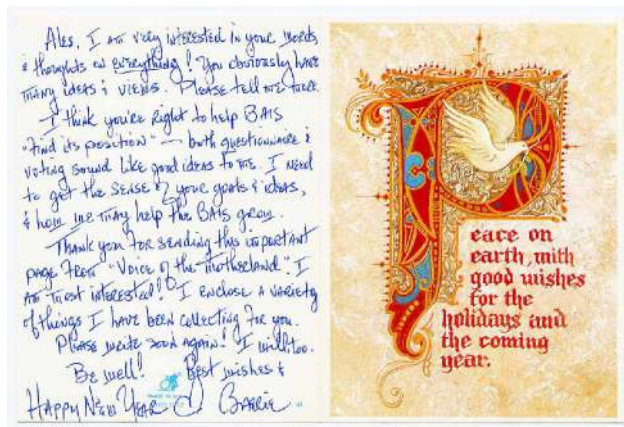 Ales, I am very interested in your words,
& thoughts on everything! You obviously have
many ideas & views. Please tell me these.
I think you're right to help BAIS
"find its position" — both questionnaire &
voting sound like good ideas to me. I need
to get the sense of your goals & ideas,
& how we may help the BAIS grow.
Thank you for sending this important
page from "Voice of the Motherland". I
am most interested! I enclose a variety
of things I have been collecting for you.
Please write soon again! I will, too.
Be well! Best wishes &
Happy New Year Barrie
Peace on
earth, with
good wishes
for the
holidays and
the coming
year.